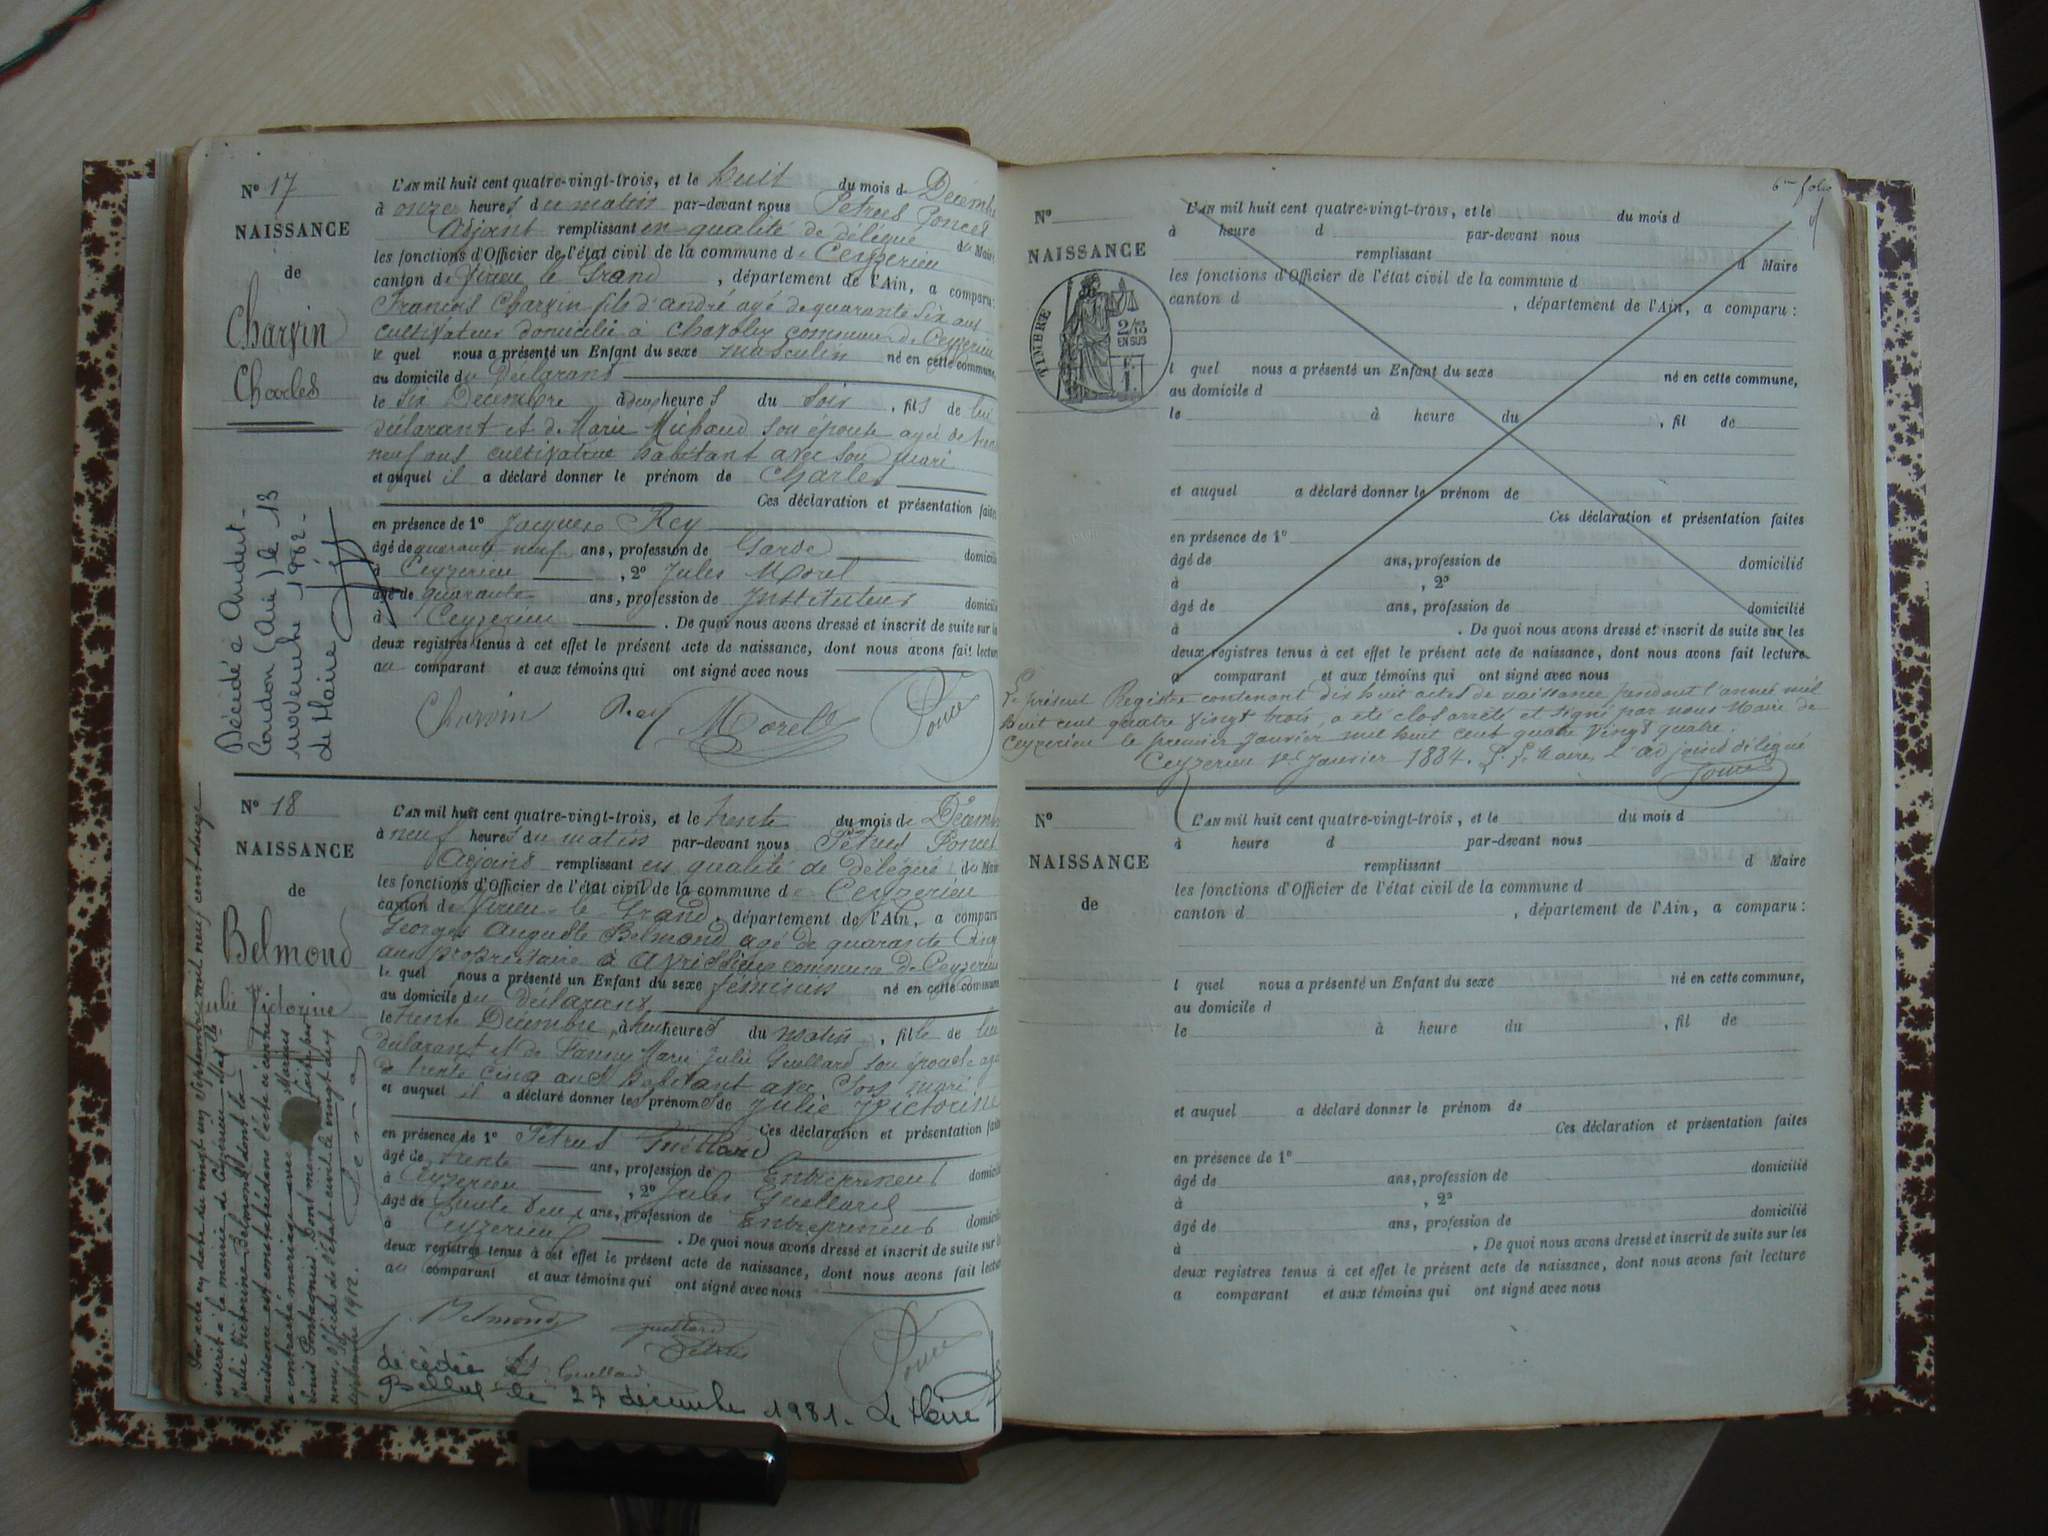 N° 17
NAISSANCE
de
Charvin
Charles
L'AN mil huit cent quatre-vingt-trois, et le huit du mois d Décembre
à onze heures du matin par-devant nous Petrus Poncet
Adjoint remplissant en qualité de délégué du Maire
les fonctions d'Officier de l'état civil de la commune de Ceyzerieu
canton de Virieu le Grand , département de l'Ain, a comparu:
François Charvin fils d'andré agé de quarante six ans
cultivateur domicilié à Chavoley commune de Ceyzerieu
le quel nous a présenté un Enfant du sexe masculin né en cette commune,
au domicile du Déclarant
le six Décembre à heures du soir , fils de lui
déclarant et de Marie Michaud son épouse agée de trente
neuf ans cultivatrice habitant avec son mari
et auquel il a déclaré donner le prénom de Charles
Ces déclaration et présentation faites
en présence de 1° Jacques Rey
âgé de quarante neuf ans, profession de Garde domicilié
à Ceyzerieu , 2° Jules Morel
âgé de quarante ans, profession de Instituteur domicilié
à Ceyzerieu . De quoi nous avons dressé et inscrit de suite sur les
deux registres tenus à cet effet le présent acte de naissance, dont nous avons fait lecture
au comparant et aux témoins qui ont signé avec nous
Charvin Rey Morel Poncet
Décédé à Andert-
Condon (Ain) le 13
novembre 1962 -
le Maire
N° 18
NAISSANCE
de
Belmond
Julie Victorine
L'AN mil huit cent quatre-vingt-trois, et le trente du mois de Décembre
à neuf heures du matin par-devant nous Pétrus Poncet
Adjoint remplissant en qualité de délégué du Maire
les fonctions d'Officier de l'état civil de la commune de Ceyzerieu
canton de Virieu-le Grand, département de l'Ain, a comparu
Georges Auguste Belmond agé de quarante cinq
ans propriétaire à Avrissieu commune de Ceyzerieu
le quel nous a présenté un Enfant du sexe féminin né en cette commune
au domicile du déclarant
le trente Décembre, à heures du matin , fille de lui
déclarant et de Fanny Marie Julie Guillard son épouse agée
de trente cinq ans habitant avec son mari
et auquel il a déclaré donner les prénoms de Julie Victorine
Ces déclaration et présentation faites
en présence de 1° Pétrus Guillard
âgé de trente ans, profession de Entrepreneur domicilié
à Ceyzerieu , 2° Jules Guillard
âgé de trente deux ans, profession de Entrepreneur domicilié
à Ceyzerieu . De quoi nous avons dressé et inscrit de suite sur les
deux registres tenus à cet effet le présent acte de naissance, dont nous avons fait lecture
au comparant et aux témoins qui ont signé avec nous
Belmond Guillard Pétrus
Js Guillard Poncet
Par acte en date du vingt un septembre mil neuf cent douze
inscrit à la mairie de Ceyzérieu Melle
Julie Victorine Belmond dont la
naissance est constatée dans l'acte ci contre
a contracté mariage avec Marius
Louis Dont mention faite par
nous, officier de l'état-civil le vingt deux
septembre 1912.
décédée
Belley le 27 décembre 1981. Le Maire
6me folio
N°
NAISSANCE
TIMBRE
2/10
EN SUS
L'AN mil huit cent quatre-vingt-trois, et le du mois d
à heure d par-devant nous
remplissant d Maire
les fonctions d'Officier de l'état civil de la commune d
canton d , département de l'Ain, a comparu :
l quel nous a présenté un Enfant du sexe né en cette commune,
au domicile d
le à heure du , fil de
et auquel a déclaré donner le prénom de
Ces déclaration et présentation faites
en présence de 1°
âgé de ans, profession de domicilié
à , 2°
âgé de ans, profession de domicilié
à . De quoi nous avons dressé et inscrit de suite sur les
deux registres tenus à cet effet le présent acte de naissance, dont nous avons fait lecture
a comparant et aux témoins qui ont signé avec nous
Le présent Registre contenant dix huit actes de naissance pendant l'année mil
huit cent quatre vingt trois, a été clos arrêté et signé par nous Maire de
Ceyzerieu le premier Janvier mil huit cent quatre vingt quatre.
Ceyzerieu 1er Janvier 1884. P. le Maire, l'adjoint délégué
Poncet
N°
NAISSANCE
de
L'AN mil huit cent quatre-vingt-trois, et le du mois d
à heure d par-devant nous
remplissant d Maire
les fonctions d'Officier de l'état civil de la commune d
canton d , département de l'Ain, a comparu :
l quel nous a présenté un Enfant du sexe né en cette commune,
au domicile d
le à heure du , fil de
et auquel a déclaré donner le prénom de
Ces déclaration et présentation faites
en présence de 1°
âgé de ans, profession de domicilié
à , 2°
âgé de ans, profession de domicilié
à . De quoi nous avons dressé et inscrit de suite sur les
deux registres tenus à cet effet le présent acte de naissance, dont nous avons fait lecture
a comparant et aux témoins qui ont signé avec nous